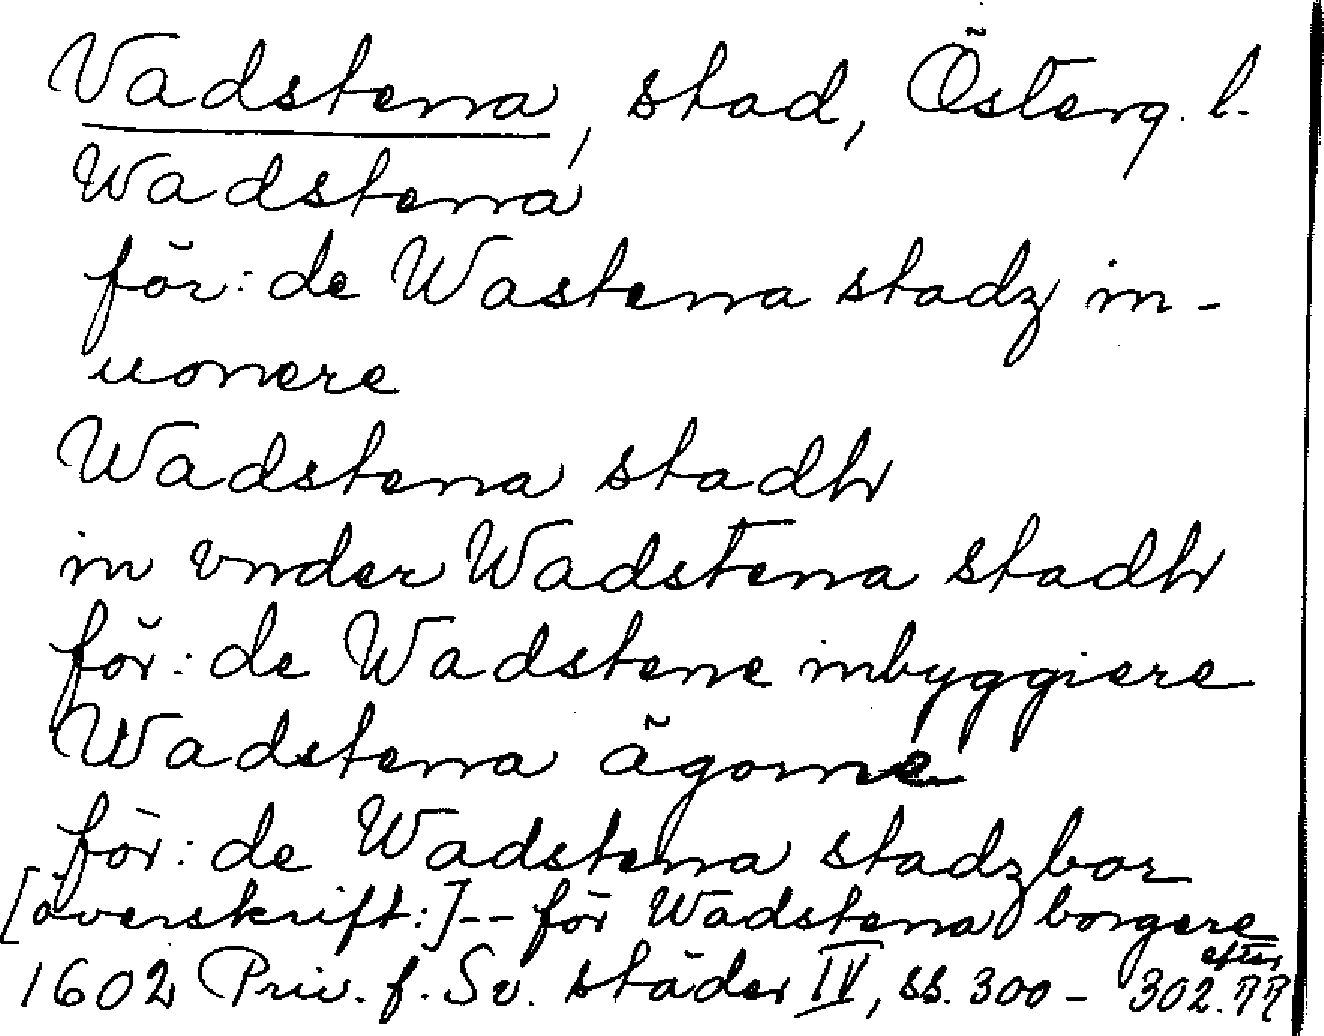 Vadstena, stad, Österg. l.
Wadstena
för: de Wastena stadz in-
uonere
Wadstena stadh
in vnder Wadstena stadh
för: de Wadstene inbyggiere
Wadstena ägorne
för: de Wadstena stadzbor
[överskrift:] -- för Wadstena borgere
efter
1602 Priv. f. Sv. städer IV, ss. 300 - 302.